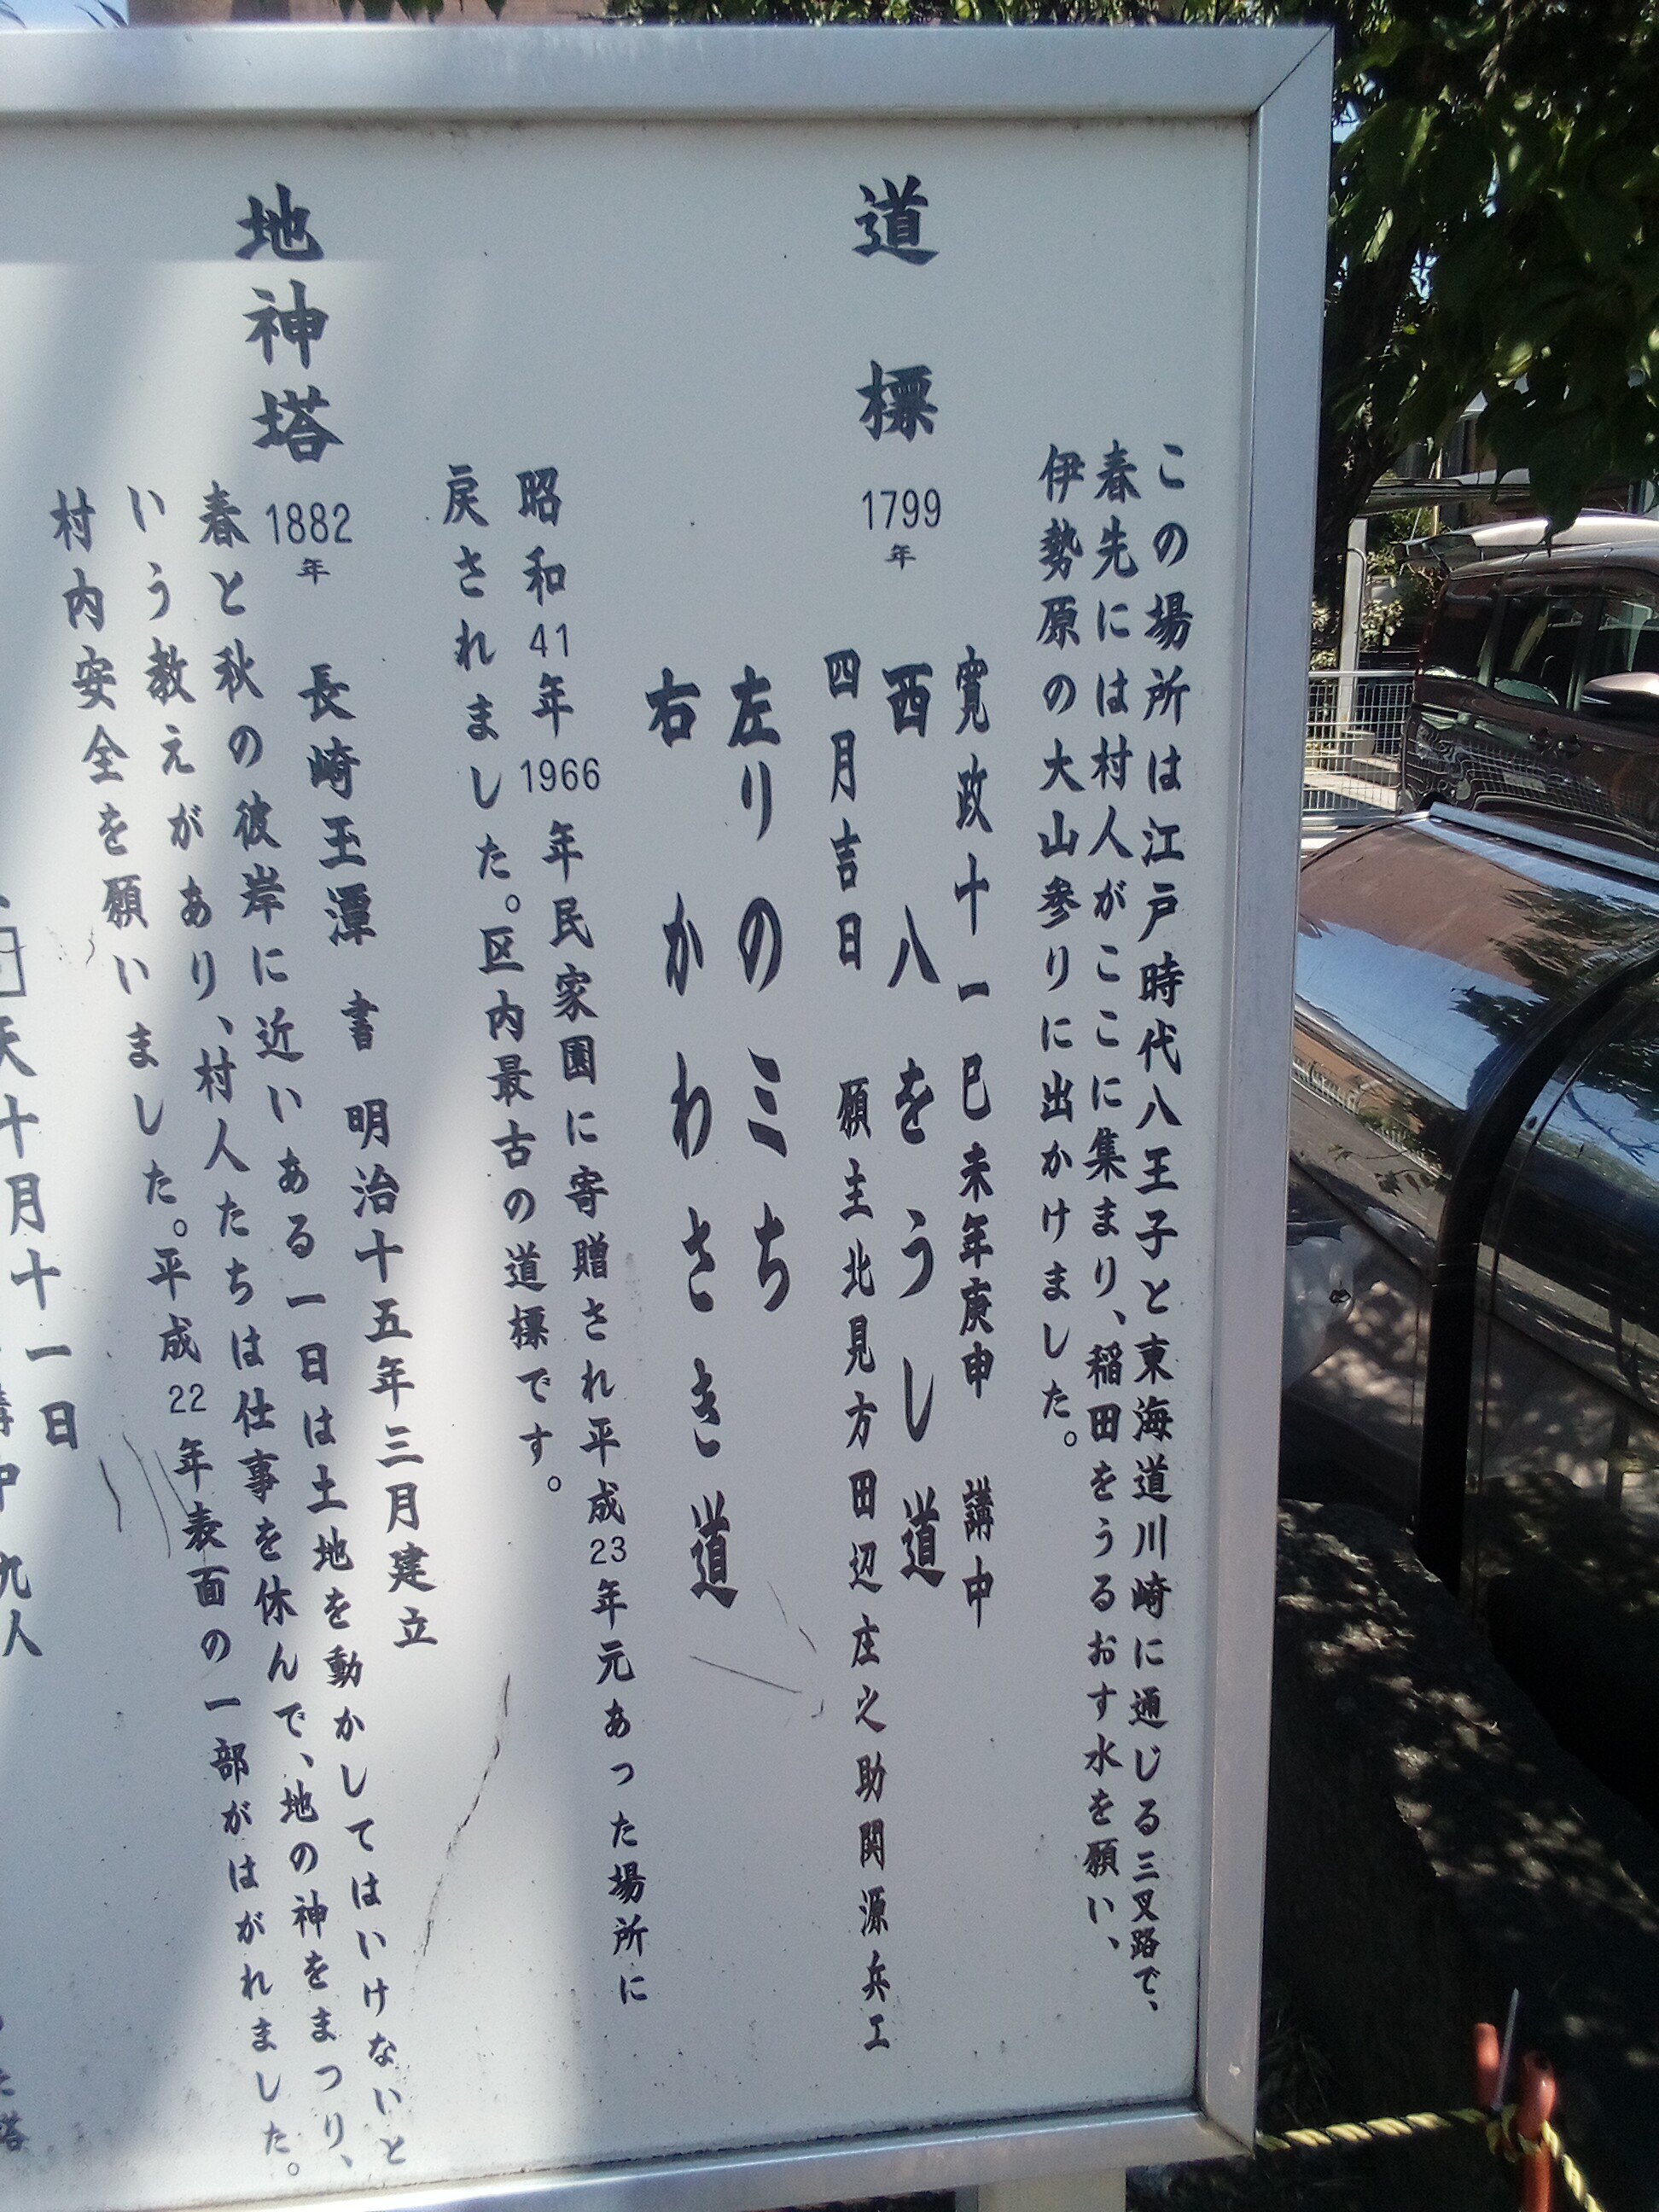 この場所は江戸時代八王子と東海道川崎に通じる三叉路で、
春先には村人がここに集まり、稲田をうるおす水を願い、
伊勢原の大山参りに出かけました。
道標 1799年
寛政十一巳未年庚申 講中
西 八をうし道
四月吉日 願主北見方田辺庄之助関源兵エ
左りのミち
右 かわさき道
昭和41年1966年民家園に寄贈され平成23年元あった場所に
戻されました。区内最古の道標です。
地神塔 1882年 長崎玉潭 書 明治十五年三月建立
春と秋の彼岸に近いある一日は土地を動かしてはいけないと
いう教えがあり、村人たちは仕事を休んで、地の神をまつり、
村内安全を願いました。平成22年表面の一部がはがれました。
十月十一日
九人
塔